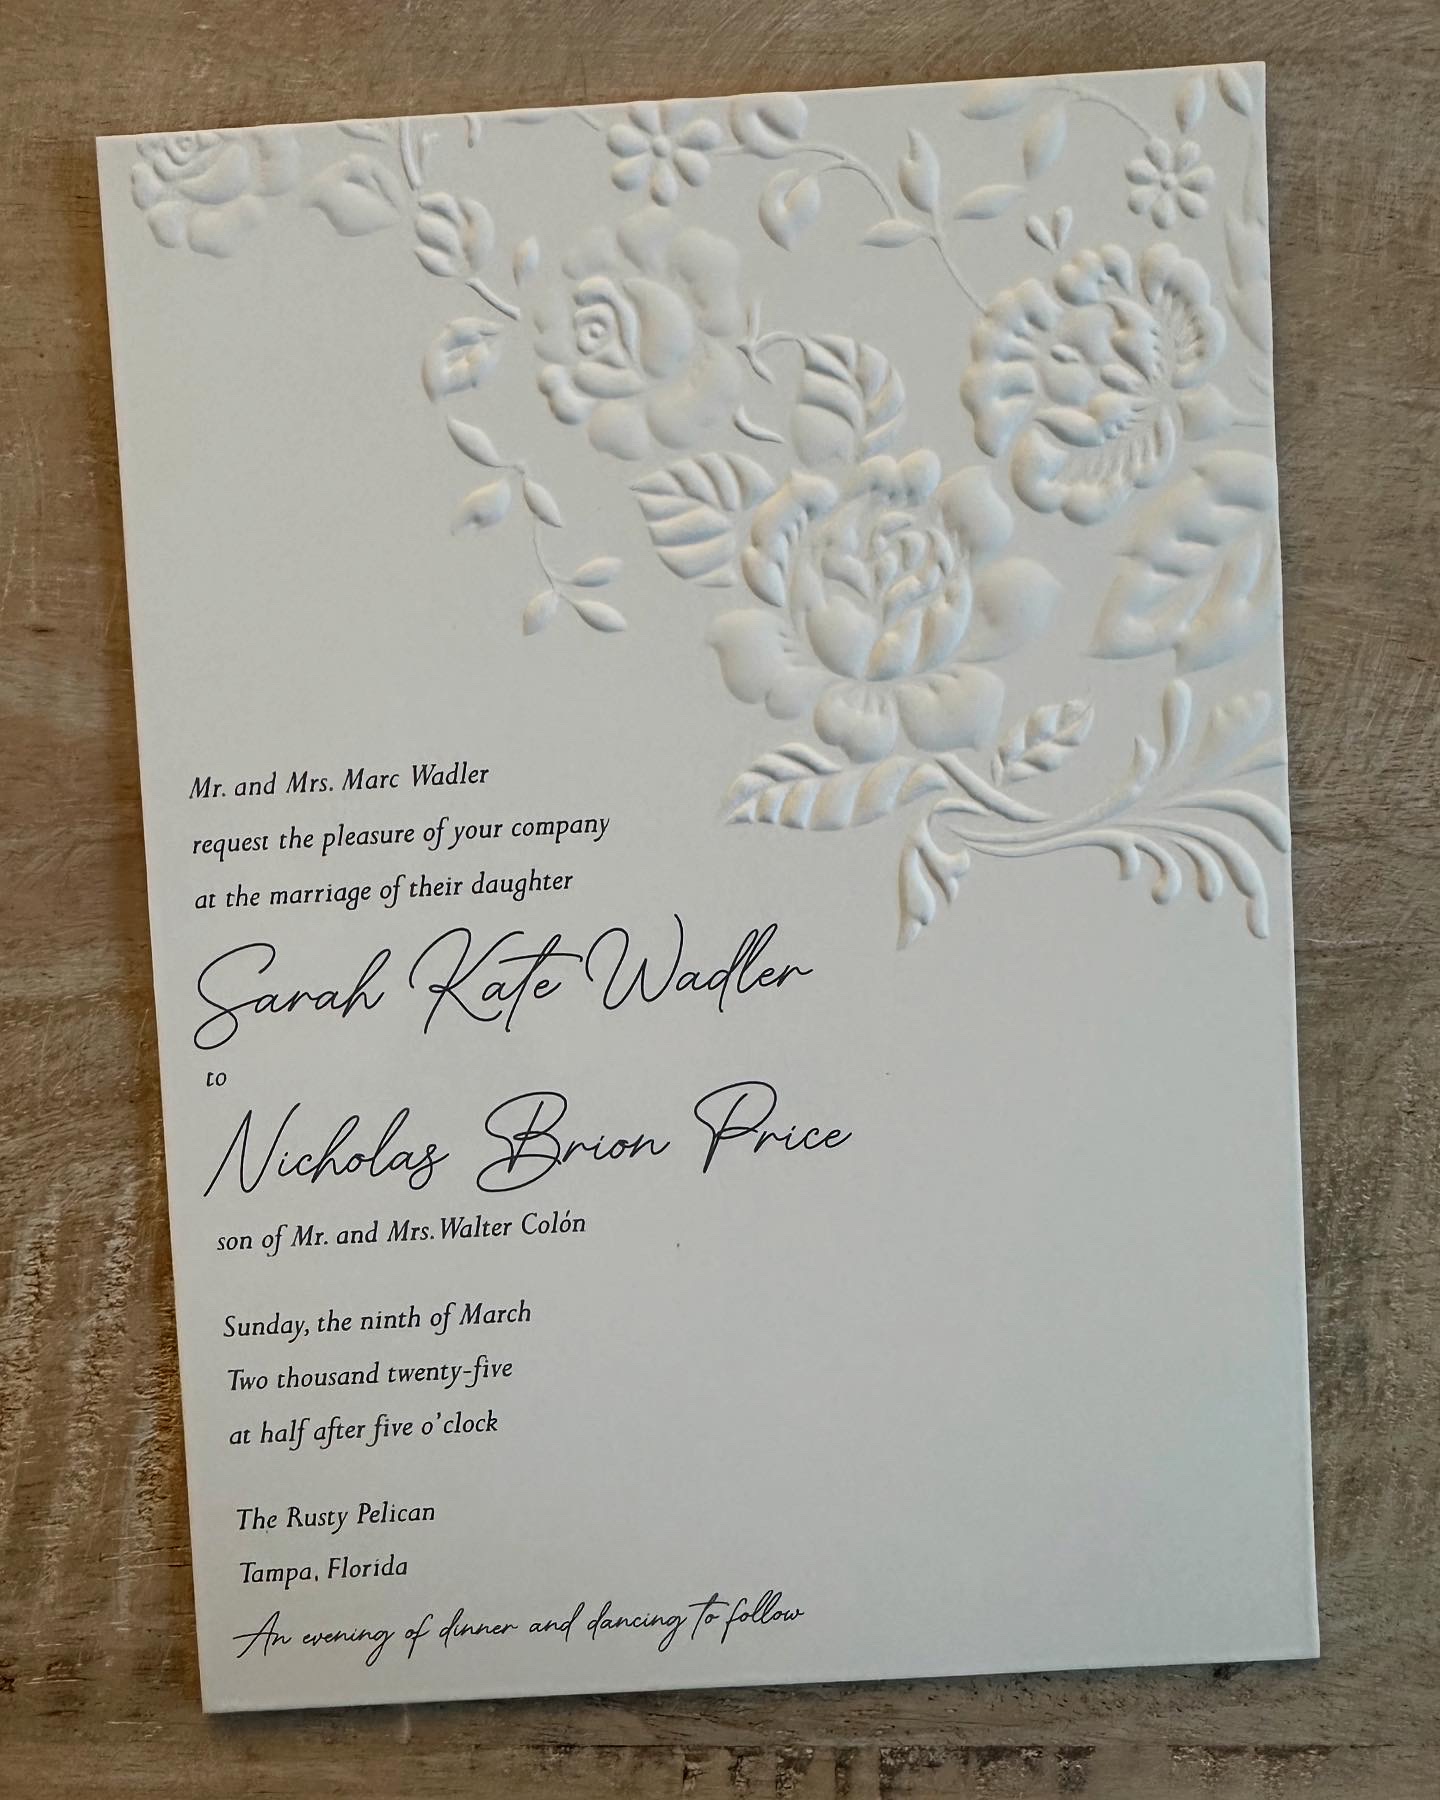 Mr. and Mrs. Marc Wadler
request the pleasure of your company
at the marriage of their daughter
Sarah Kate Wadler
to
Nicholas Brion Price
son of Mr. and Mrs. Walter Colón
Sunday, the ninth of March
Two thousand twenty-five
at half after five o'clock
The Rusty Pelican
Tampa, Florida
An evening of dinner and dancing to follow